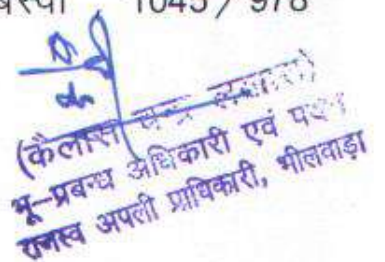 1045 / 978
(कैलाश चन्द्र
भू-प्रबन्ध अधिकारी एवं पदेन
राजस्व अपली प्राधिकारी, भीलवाड़ा